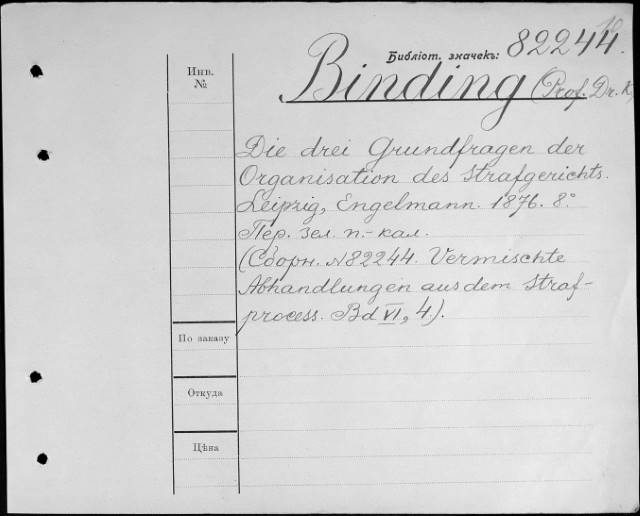 Библіот. значекъ: 82244.
Инв.
№
Binding (Prof. Dr. K.)
Die drei Grundfragen der
Organisation des Strafgerichts.
Leipzig, Engelmann. 1876. 8°
Пер. зел. п.-кал.
(Сборн. №82244. Vermischte
Abhandlungen aus dem Straf-
process. Bd VI, 4.).
По заказу
Откуда
Цѣна